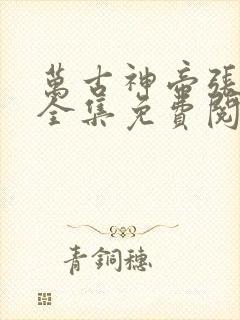 萬古神帝張
全集免費閱
青銅穗